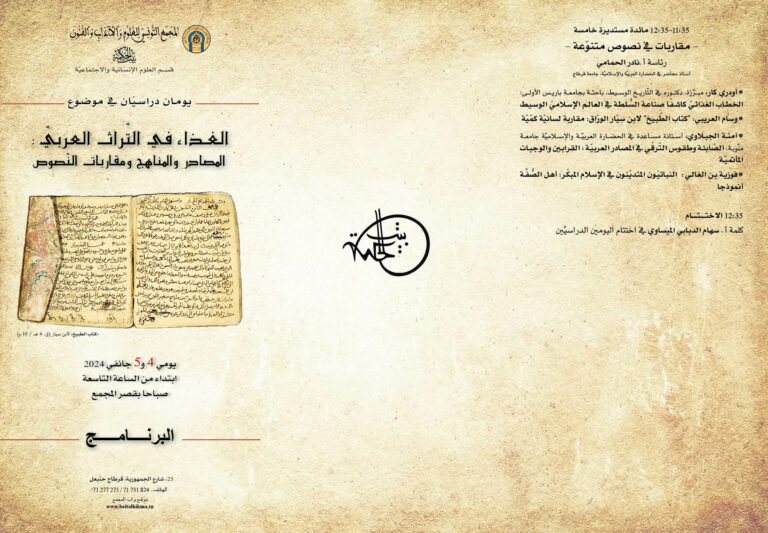 المجمع التونسي للعلوم والآداب والفنون
بيت الحكمة
قسم العلوم الإنسانية والاجتماعية
يومان دراسيّان في موضوع
الغذاء في التراث العربيّ :
المصادر والمناهج ومقاربات النّصوص
«كتاب الطبيخ» لابن سيار (ق. 4 هـ / 10 م)
يومي 4 و5 جانفي 2024
ابتداء من الساعة التاسعة
صباحا بقصر المجمع
البرنـامــج
25، شارع الجمهورية، قرطاج حنبعل
الهاتف: 71 731 824 / 71 277 275
موقع واب المجمع
www.beitalhikma.tn
بيت الحكمة
11:35-12:35 مائدة مستديرة خامسة
- مقاربات في نصوص متنوّعة -
رئاسة أ. نادر الحمامي
أستاذ محاضر في الحضارة العربيّة والإسلاميّة، جامعة قرطاج
● أودري كار: مبرّزة، دكتوره في التّاريخ الوسيط، باحثة بجامعة باريس الأولى:
الخطاب الغذائيّ كاشفا صناعة السّلطة في العالم الإسلاميّ الوسيط
● وسام العريبي: "كتاب الطّبيخ" لابن سيّار الورّاق: مقاربة لسانيّة كميّة
● آمنة الجبلاوي: أستاذة مساعدة في الحضارة العربيّة والإسلاميّة جامعة
منّوبة: الصّابئة وطقوس التّرقّي في المصادر العربيّة : القرابين والوجبات
المأتميّة
● فوزية بن الغالي : النباتيّون المتديّنون في الإسلام المبكّر: أهل الصُّفّة
أنموذجا
12:35 الاختــتــام
كلمة أ. سهام الدبابي الميساوي في اختتام اليومين الدراسيّين